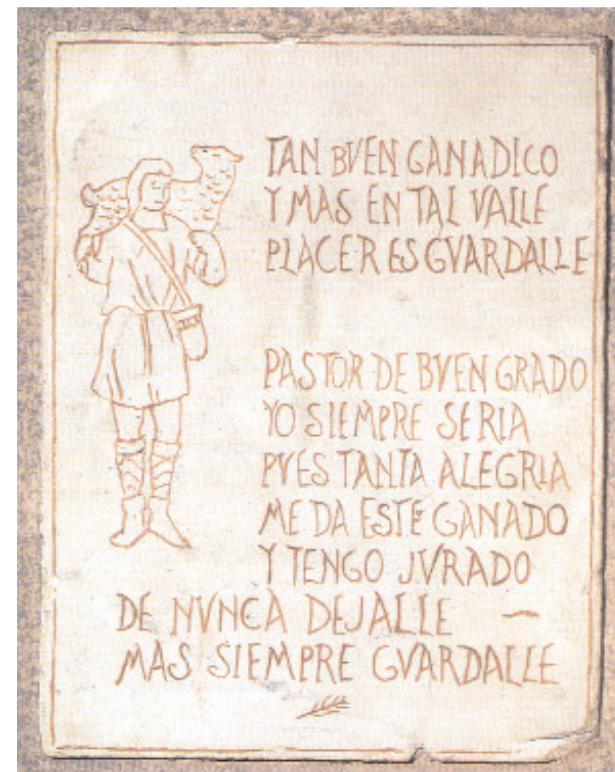 TAN BVEN GANADICO
Y MAS EN TAL VALLE
PLACER ES GVARDALLE
PASTOR DE BVEN GRADO
YO SIEMPRE SERIA
PVES TANTA ALEGRIA
ME DA ESTE GANADO
Y TENGO JVRADO
DE NVNCA DEJALLE —
MAS SIEMPRE GVARDALLE